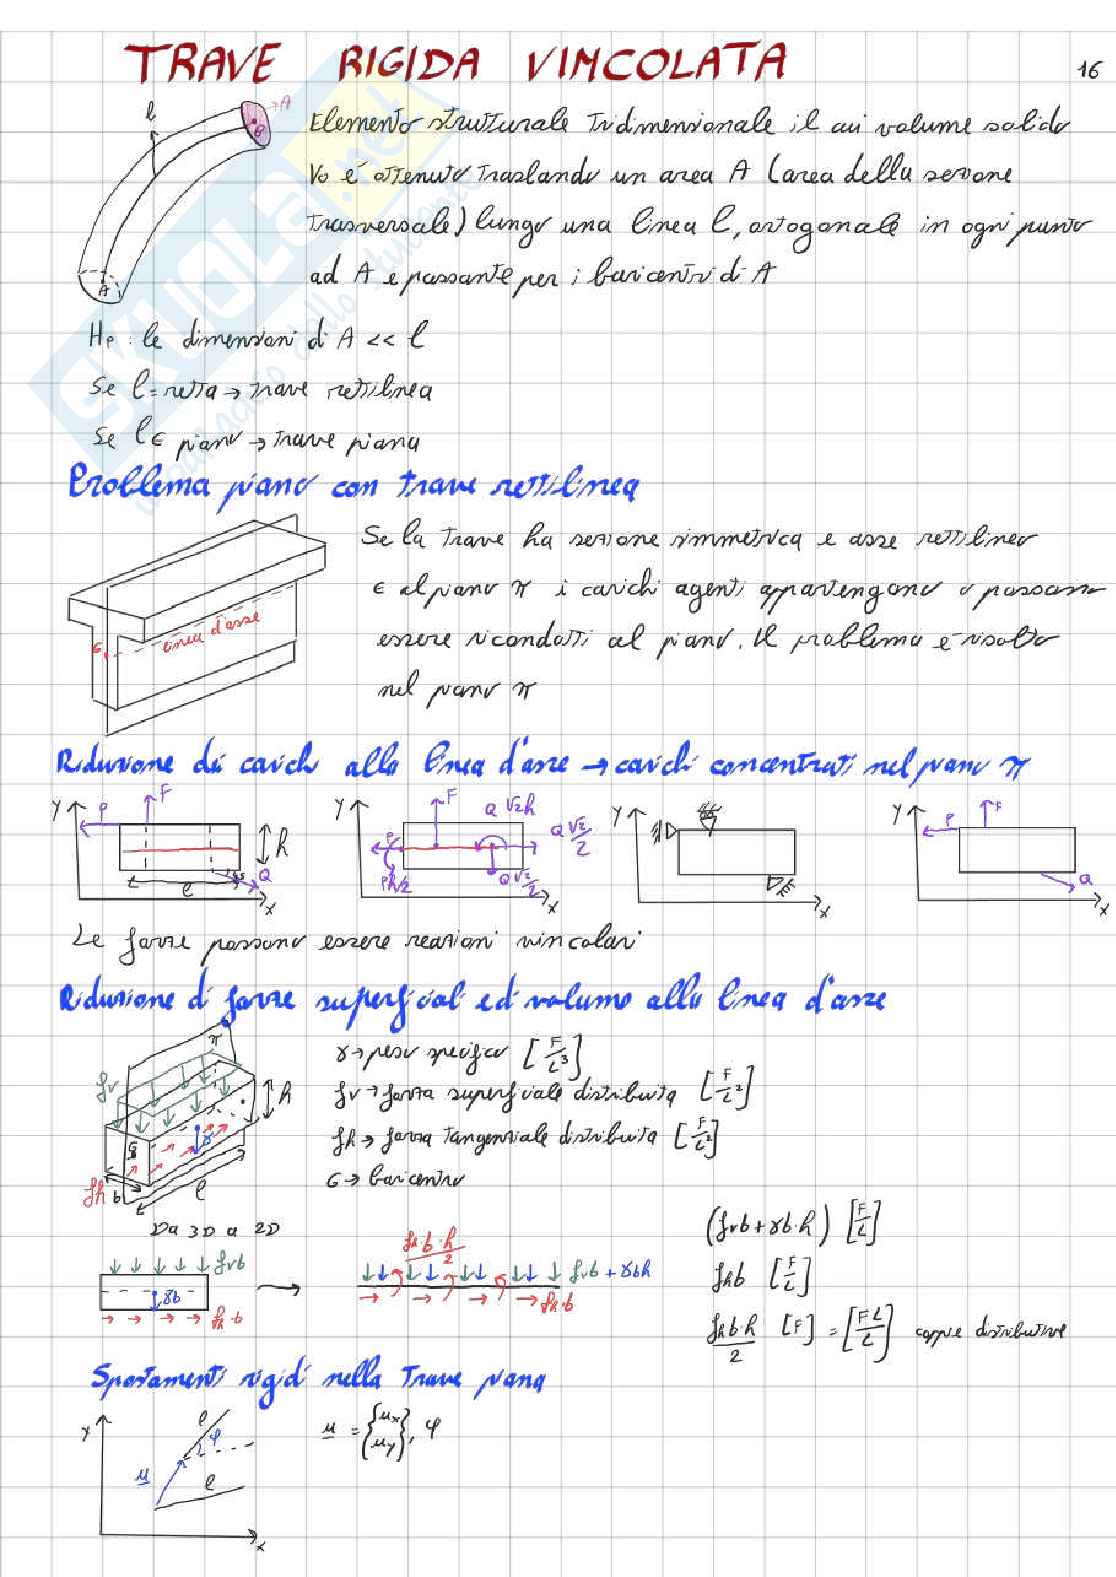 TRAVE RIGIDA VINCOLATA
16
Elemento strutturale tridimensionale il cui volume solido
V₀ é ottenuto traslando un area A (area della sezione
trasversale) lungo una linea l, ortogonale in ogni punto
ad A e passante per i baricentri di A
l
A
G
A
Hp: le dimensioni di A << l
Se l = retta → trave rettilinea
Se l ∈ piano → trave piana
Problema piano con trave rettilinea
Se la trave ha sezione simmetrica e asse rettilineo
∈ al piano π i carichi agenti appartengono o possano
essere ricondotti al piano. Il problema è risolto
nel piano π
G
linea d'asse
Riduzione dei carichi alla linea d'asse → carichi concentrati nel piano π
Y P F h l 45 Q x
Y F P Ph/2 Q√2h Q√2/2 Q√2/2 x
Y x
Y P F Q x
Le forze possono essere reazioni vincolari
Riduzione di forze superficiali ed volume alla linea d'asse
γ → peso specifico [F/L³]
fv → forza superficiale distribuita [F/L²]
fh → forza tangenziale distribuita [F/L²]
G → baricentro
π
fv
h
G
γ
fh b l
Da 3D a 2D
fvb
γb
fh·b
fh·b·h/2
fvb + γbh
fh·b
(fvb + γb·h) [F/L]
fhb [F/L]
fhb·h/2 [F] = [FL/L] coppie distribuite
Spostamenti rigidi nella trave piana
u = {ux uy}, φ
Y
l
φ
u
l
x